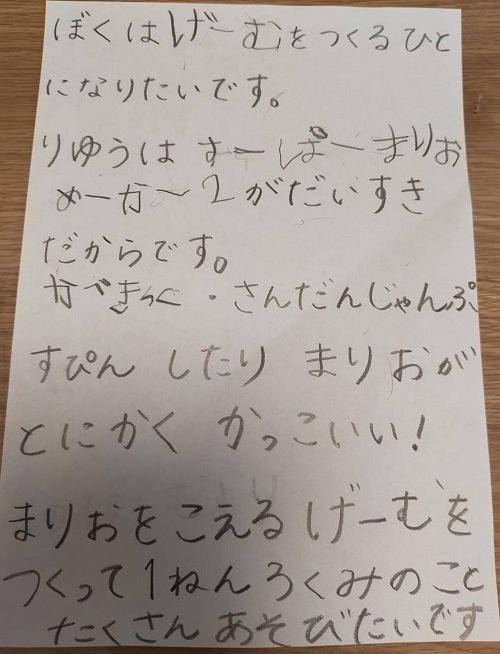 ぼくはげーむをつくるひと
になりたいです。
りゆうは すーぱーまりお
めーかー2がだいすき
だからです。
かべきっく・さんだんじゃんぷ
すぴん したり まりおが
とにかく かっこいい!
まりおをこえるげーむを
つくって1ねんろくみのこと
たくさん あそびたいです